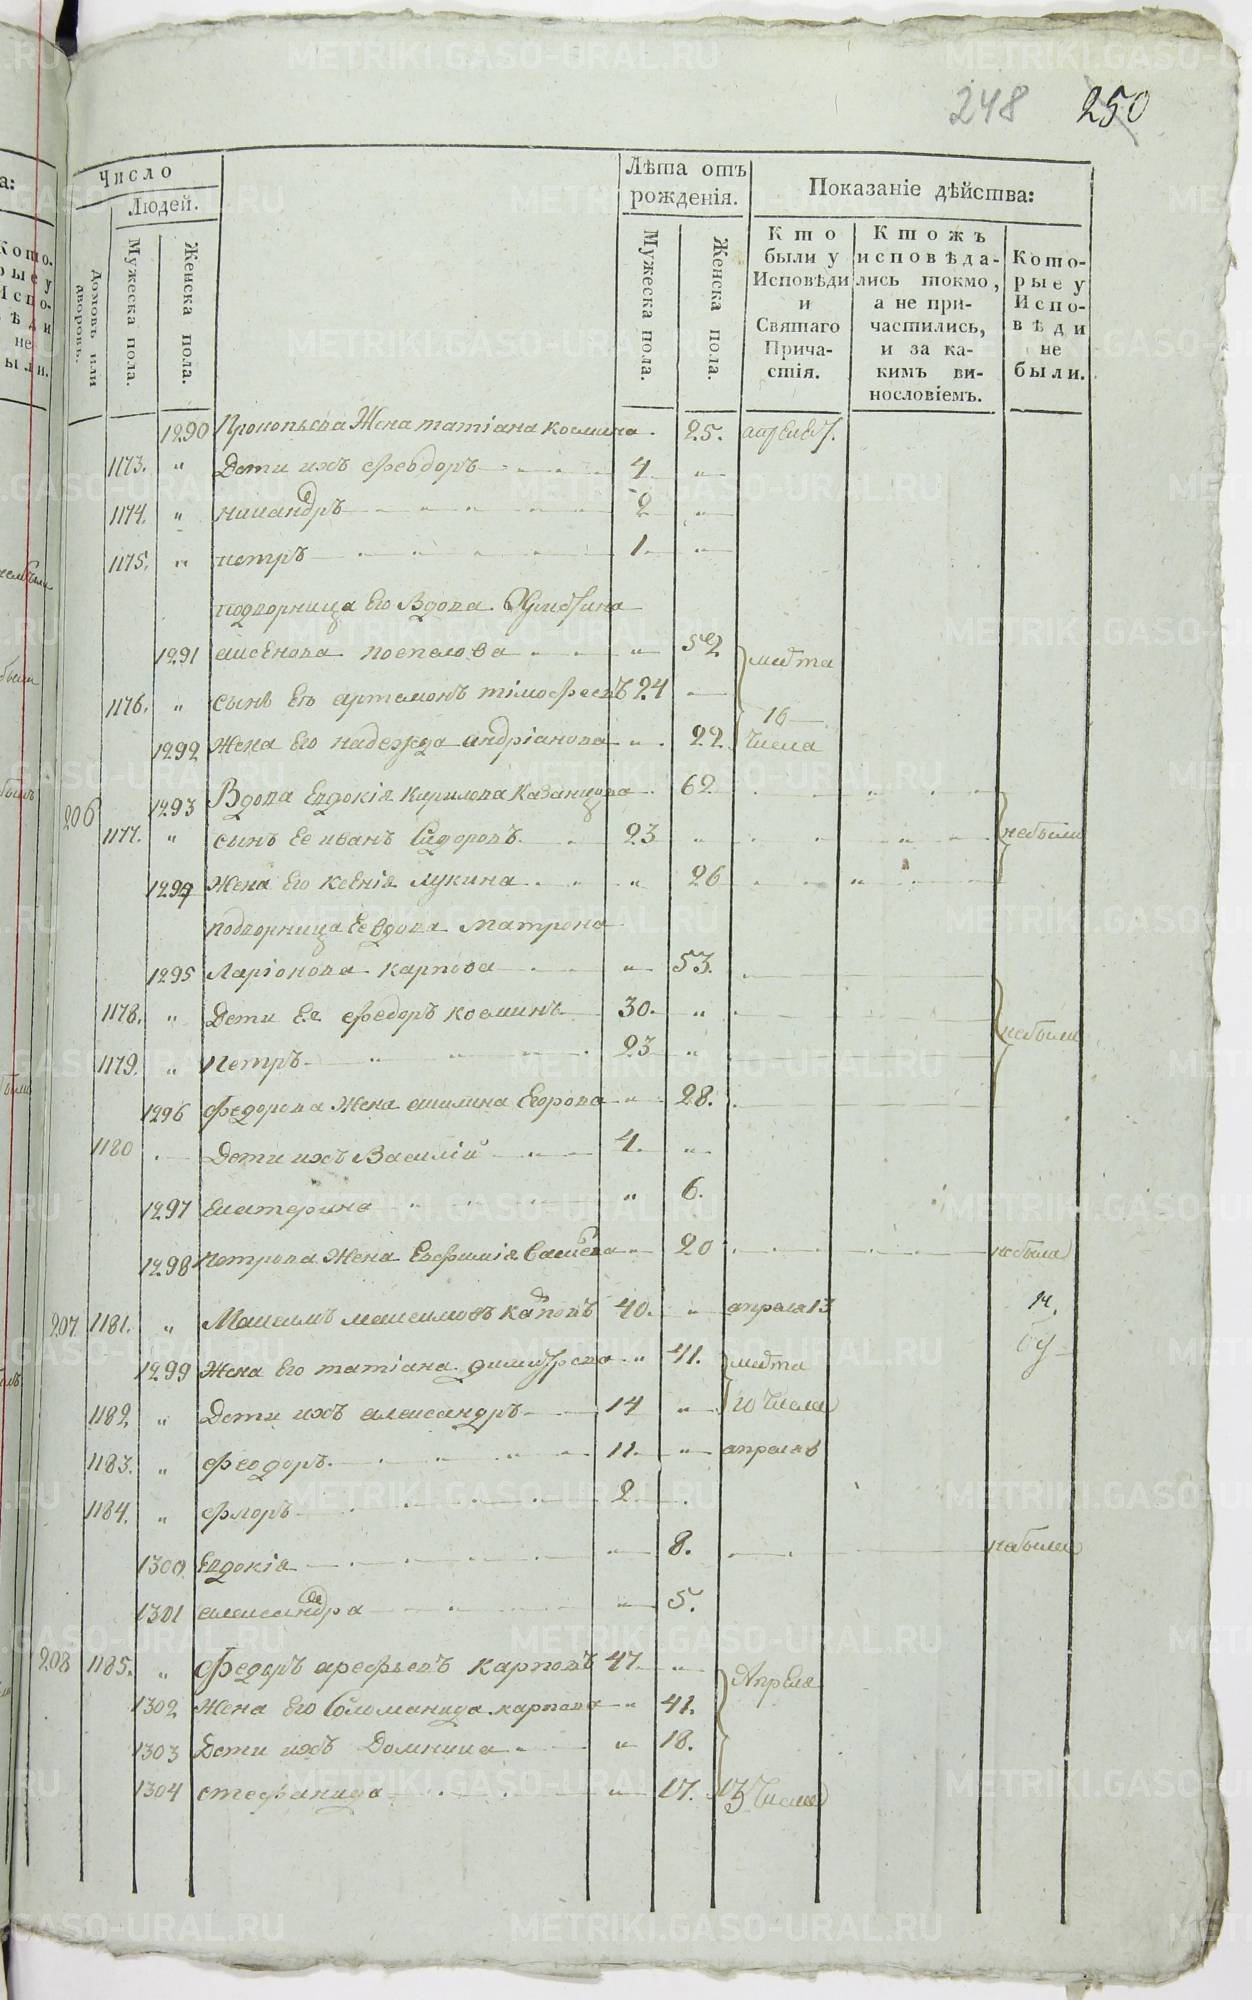 248 250
Число
Людей.
Домовъ или дворовъ.
Мужеска пола.
Женска пола.
Лѣта отъ рожденія.
Мужеска пола.
Женска пола.
Показаніе дѣйства:
Кто были у Исповѣди и Святаго Причастія.
Ктожъ исповѣдались токмо, а не причастились, и за какимъ винословіемъ.
Которые у Исповѣди не были.
1290 Прокопьева Жена татіана космина 25.
1173. " Дети ихъ Феодоръ 4 "
1174. " никандръ 2 "
1175. " петръ 1. "
подворница Его Вдова Христина
1291 аксенова поспелова " 52 марта
1176. " сынъ Ео артемонъ тімофеевъ 24
1292 Жена Его надежда андріанова " 22 16 числа
206 1293 Вдова Евдокія кирилова Казанцова 62
1177. " сынъ Ее иванъ Сидоровъ 23 " небыли
1294 Жена Его ксенія лукина " 26
подворница Ее вдова матрона
1295 Ларіонова карпова " 53.
1178. " Дети Ее Федоръ косминъ 30. "
1179. " Петръ 23 " небыли
1296 Федорова Жена акилина Егорова " 28.
1180 Дети ихъ Василій 4. "
1297 Екатерина " 6.
1298 Петрова Жена Евфимія 20 небыла
207 1181. " Максимъ максимовъ 40. " апреля 13 14.
1299 Жена Его татіана димитрева " 41. марта
1182 " Дети ихъ александръ 14 " 10 Числа
1183. " Феодоръ 11. " апреля 8
1184. " Флоръ 2
1300 Евдокія " 8. небыли
1301 александра " 5.
208 1185. " Федоръ арефьевъ карповъ 47. " Апреля
1302 Жена Его Соломанида карпова " 41.
1303 Дети ихъ Домника " 18.
1304 стефанида " 17. 13 Числа
METRIKI.GASO-URAL.RU